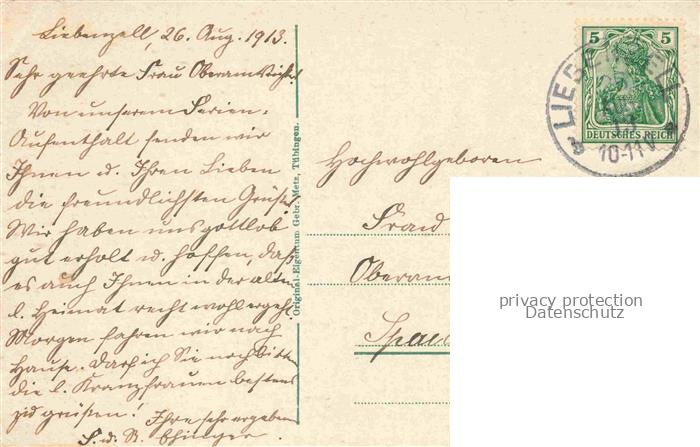 Liebenzell, 26. Aug. 1913.
Sehr geehrte Frau Oberamtsrichter!
Von unserem Ferien-
Aufenthalt senden wir
Ihnen u. Ihren Lieben
die freundlichsten Grüße!
Wir haben uns gottlob
gut erholt u. hoffen, daß
es auch Ihnen in der alten
l. Heimat recht wohl ergeht.
Morgen fahren wir nach
Hause. Darf ich Sie noch bitten
die l. Kranzfrauen bestens
zu grüßen! Ihre sehr ergeben
Ehinger
Original-Eigentum Gebr. Metz, Tübingen.
5 5
DEUTSCHES REICH
LIEBENZELL
10-11V
Hochwohlgeboren
Frau
Oberam
privacy protection
Datenschutz